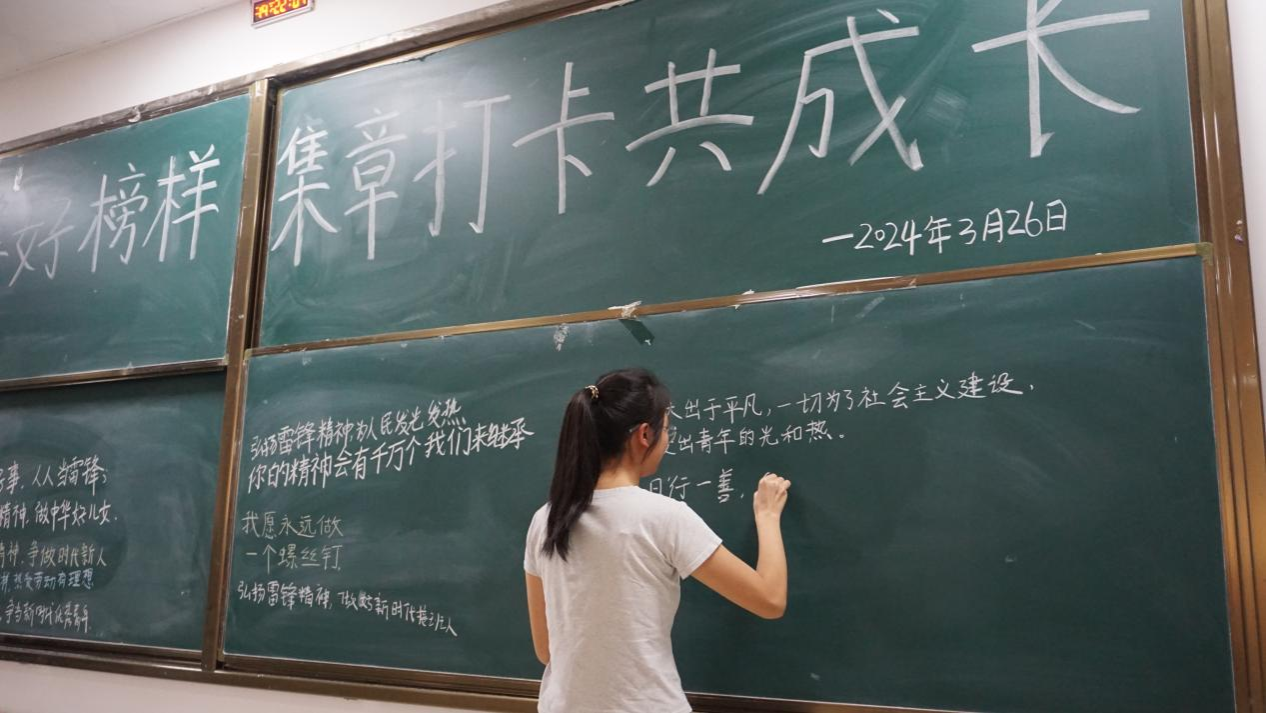 19:22:07
好榜样
集章打卡共成长
一2024年3月26日
事,人人当雷锋;
精神,做中华好儿女.
精神,争做时代新人
热爱劳动有理想
争当新时代优秀青年
弘扬雷锋精神,为人民发光发热
你的精神会有千万个我们来继承
我愿永远做
一个螺丝钉
弘扬雷锋精神,做好新时代接班人
出于平凡,一切为了社会主义建设,
出青年的光和热。
日行一善,